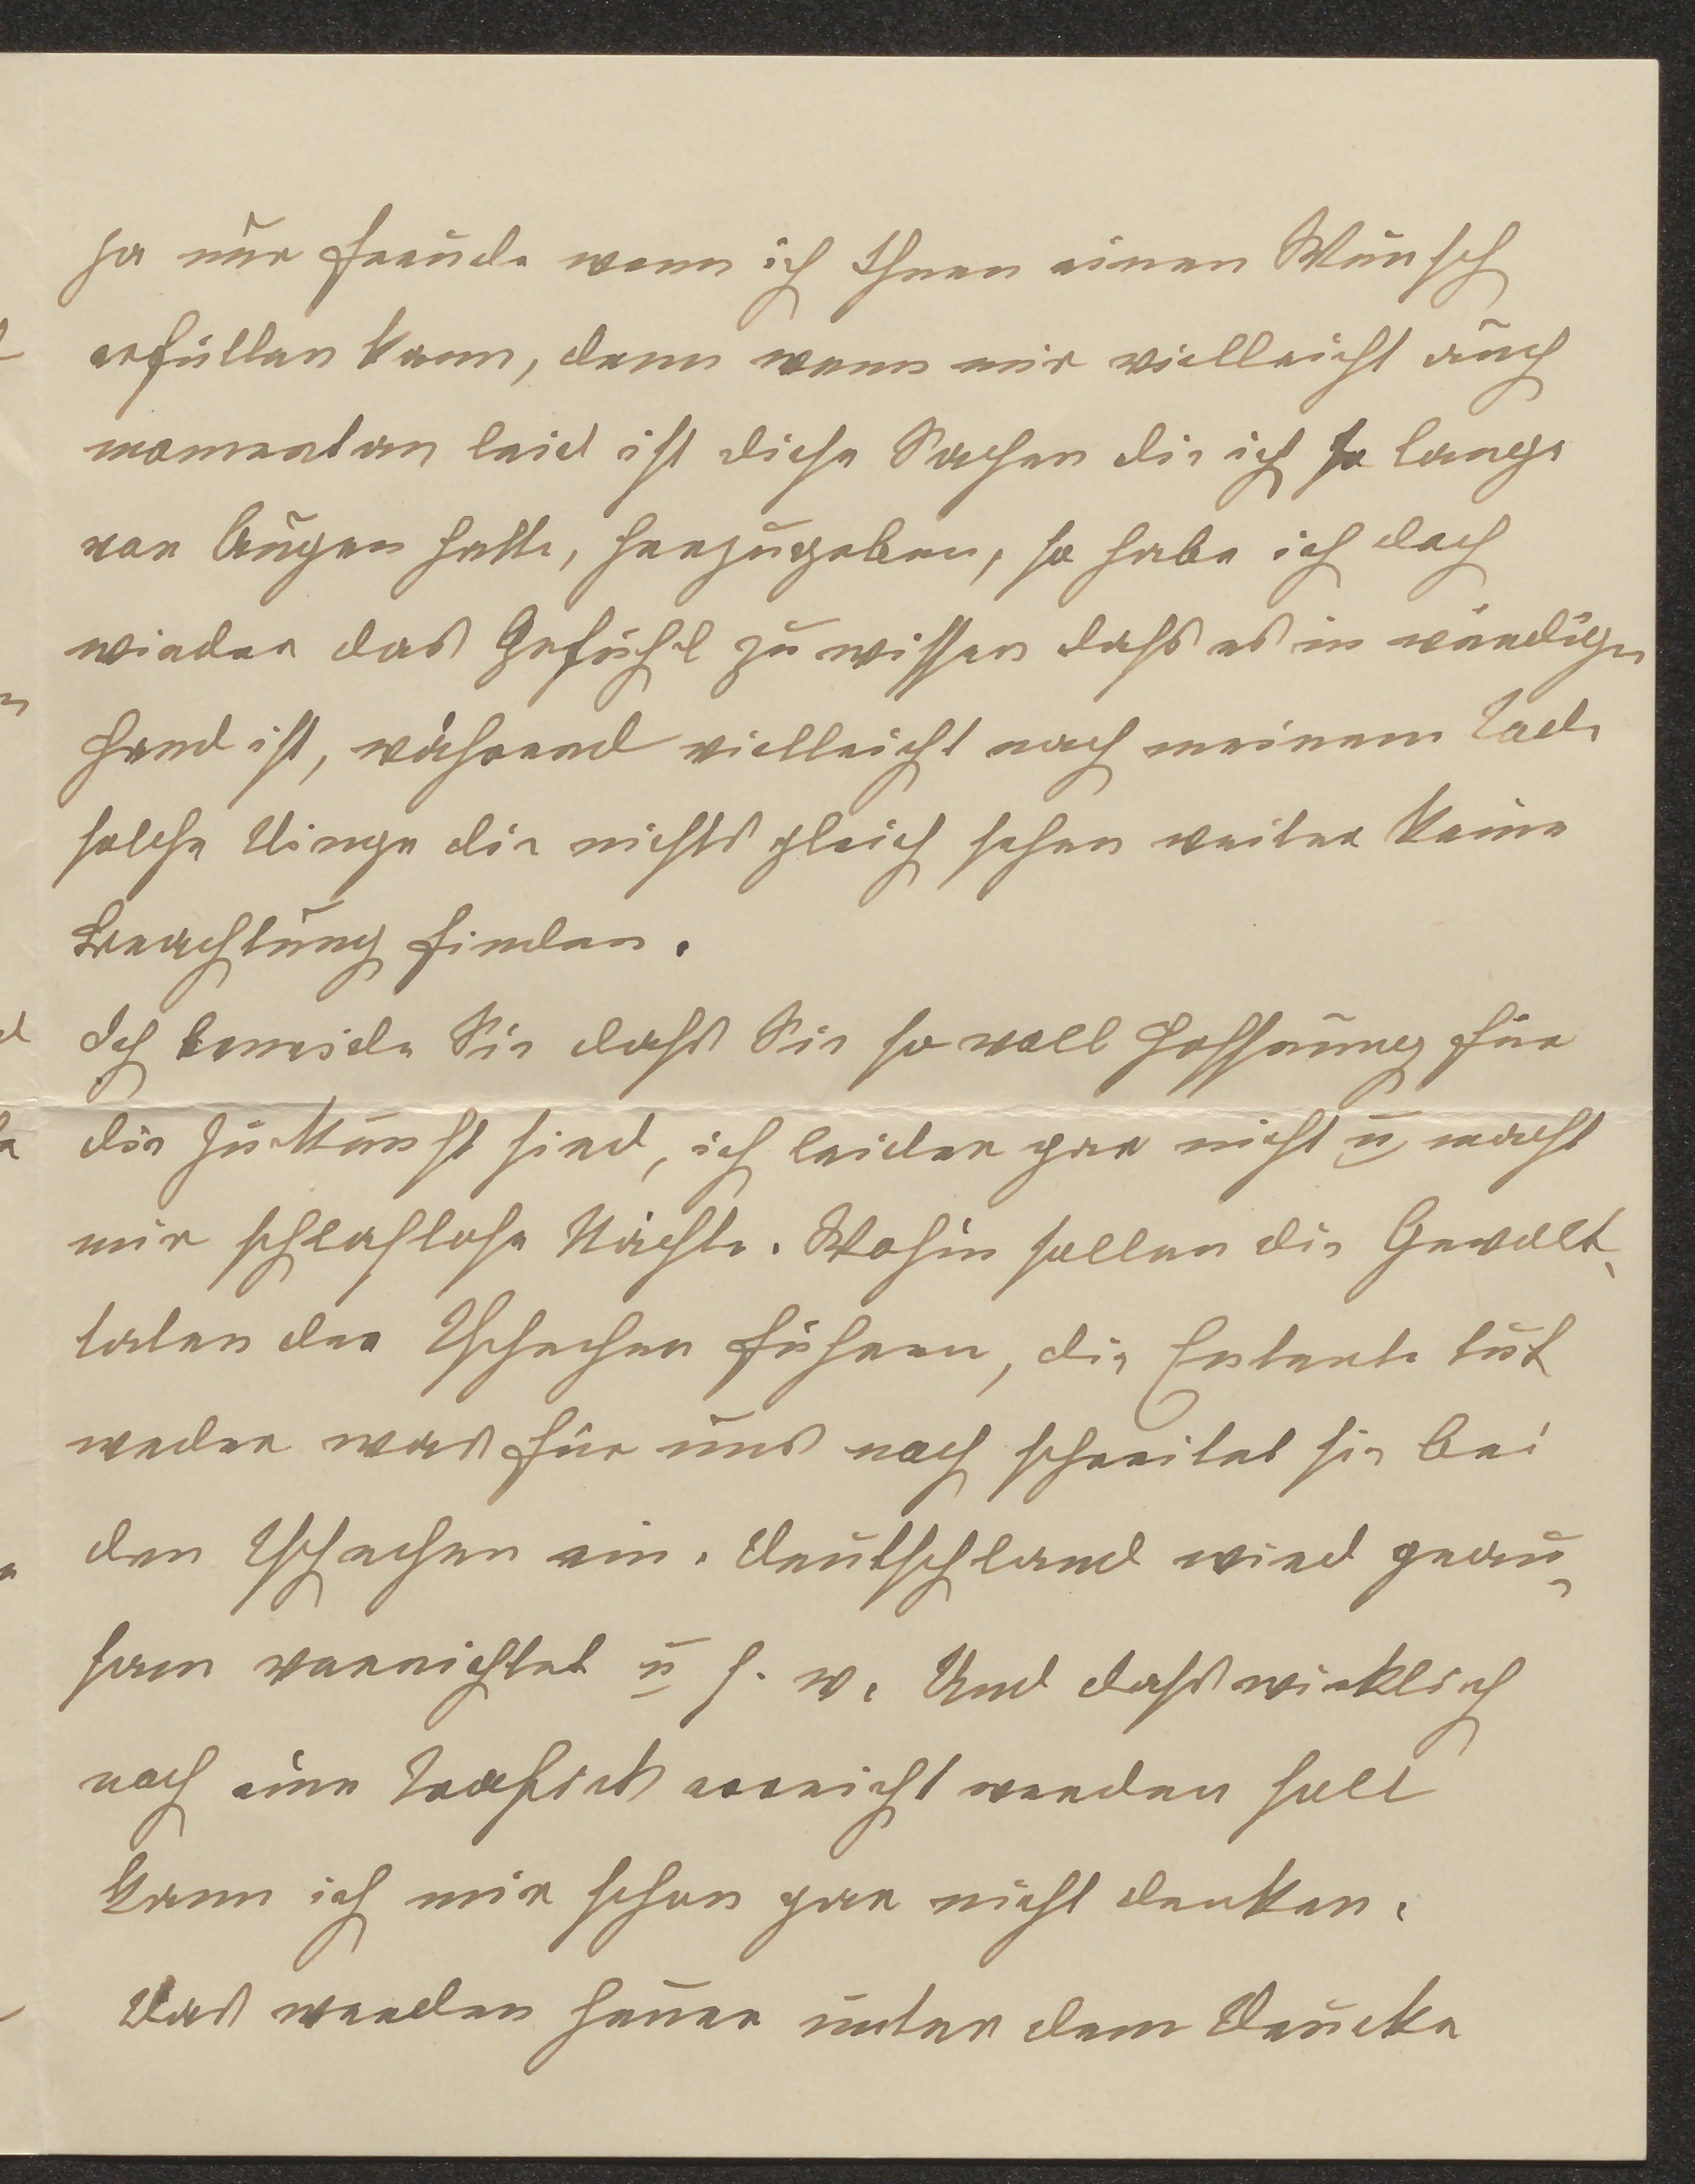 ja nur Freude wenn ich Ihnen einen Wunsch
erfüllen kann, denn wenn mir vielleicht auch
momentan leid ist diese Sachen die ich so lange
vor Augen hatte, herzugeben, so habe ich doch
wieder das Gefühl zu wissen dass es in würdiger
Hand ist, während vielleicht nach meinem Tode
solche Dinge die nichts gleich sehen weiter keine
Beachtung finden.
Ich beneide Sie dass Sie so voll Hoffnung für
die Zukunft sind, ich leider gar nicht u macht
mir schlaflose Nächte. Wohin sollen die Gewalt-
taten der Tschechen führen, die Entente tut
weder was für uns noch schreitet sie bei
den Tschechen ein. Deutschland wird grau-
sam vernichtet u s. w. Und dass wirklich
noch eine erreicht werden soll
kann ich mir schon gar nicht denken.
Das werden heuer unter dem Drucke